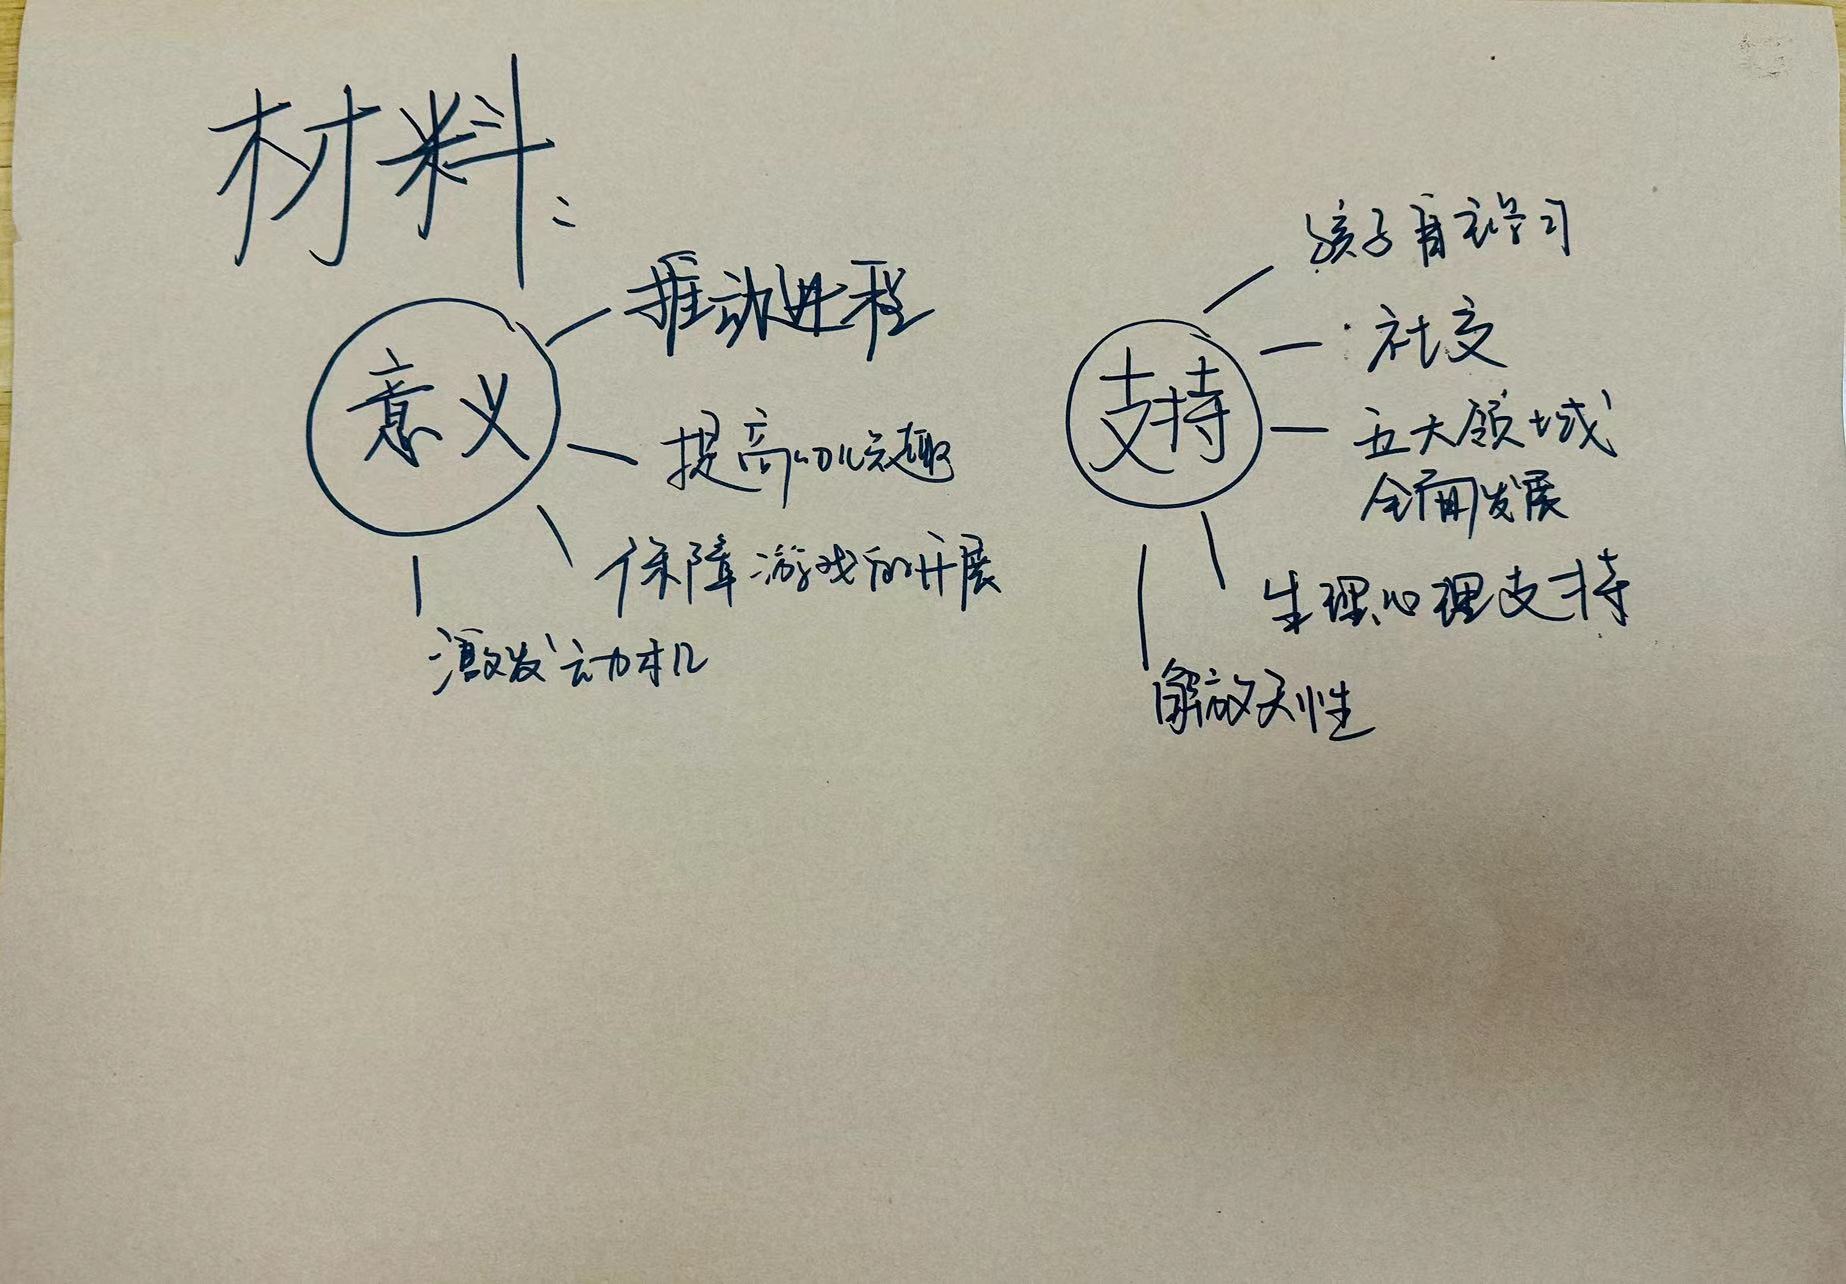 材料：
意义
推动进程
提高幼儿兴趣
保障游戏的开展
激发动机
支持
孩子自主学习
社交
五大领域
全面发展
生理心理支持
解放天性